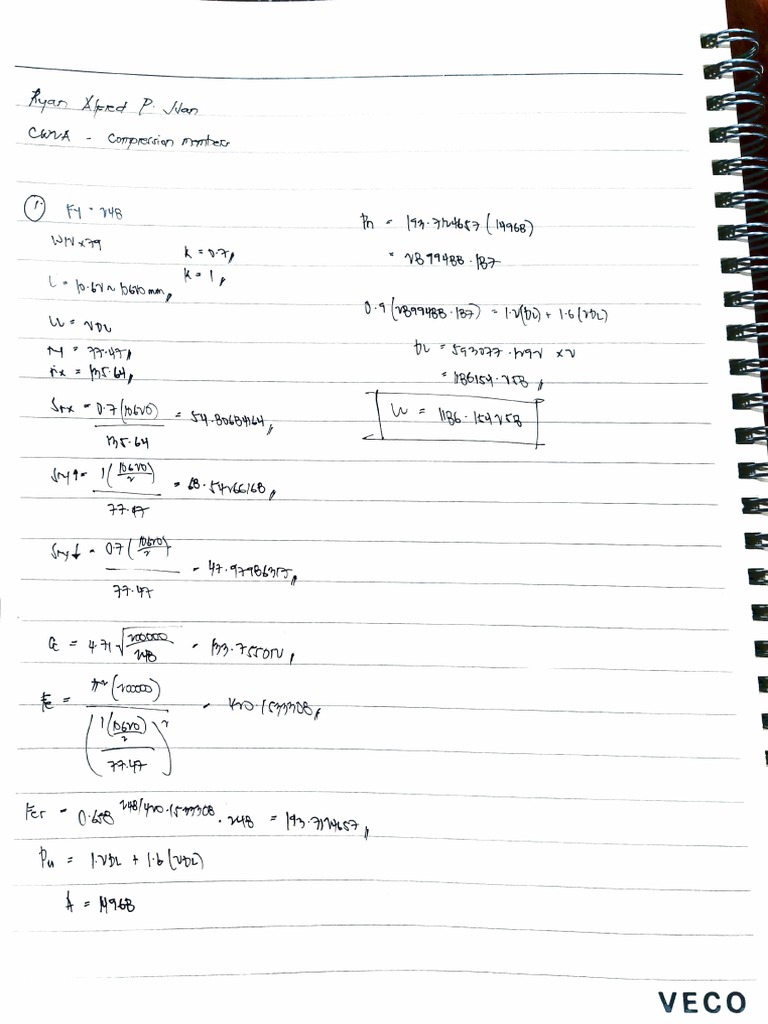 Ryan Alfred P. Juan
CW2A - Compression members
1. Fy = 248
W12x79
K = 0.7,
K = 1,
L = 10.62 ~ 10620 mm,
LL = 2DL
ry = 77.47,
rx = 135.64,
Srx = 0.7(10620) / 135.64 = 54.80684164,
Sry↑ = 1(10620/2) / 77.47 = 68.54266168,
Sry↓ = 0.7(10620/2) / 77.47 = 47.97986317,
Cc = 4.71 √(200000/248) = 133.755012,
Fe = π²(200000) / (1(10620/2) / 77.47)² = 420.1533308,
Fcr = 0.658^248/420.1533308 . 248 = 193.7124657,
Pu = 1.2DL + 1.6(2DL)
A = 14968
Pn = 193.7124657(14968)
= 2899488.187
0.9(2899488.187) = 1.2(DL) + 1.6(2DL)
DL = 593077.1292 x 2
= 1186154.258,
LL = 1186.154258
VECO